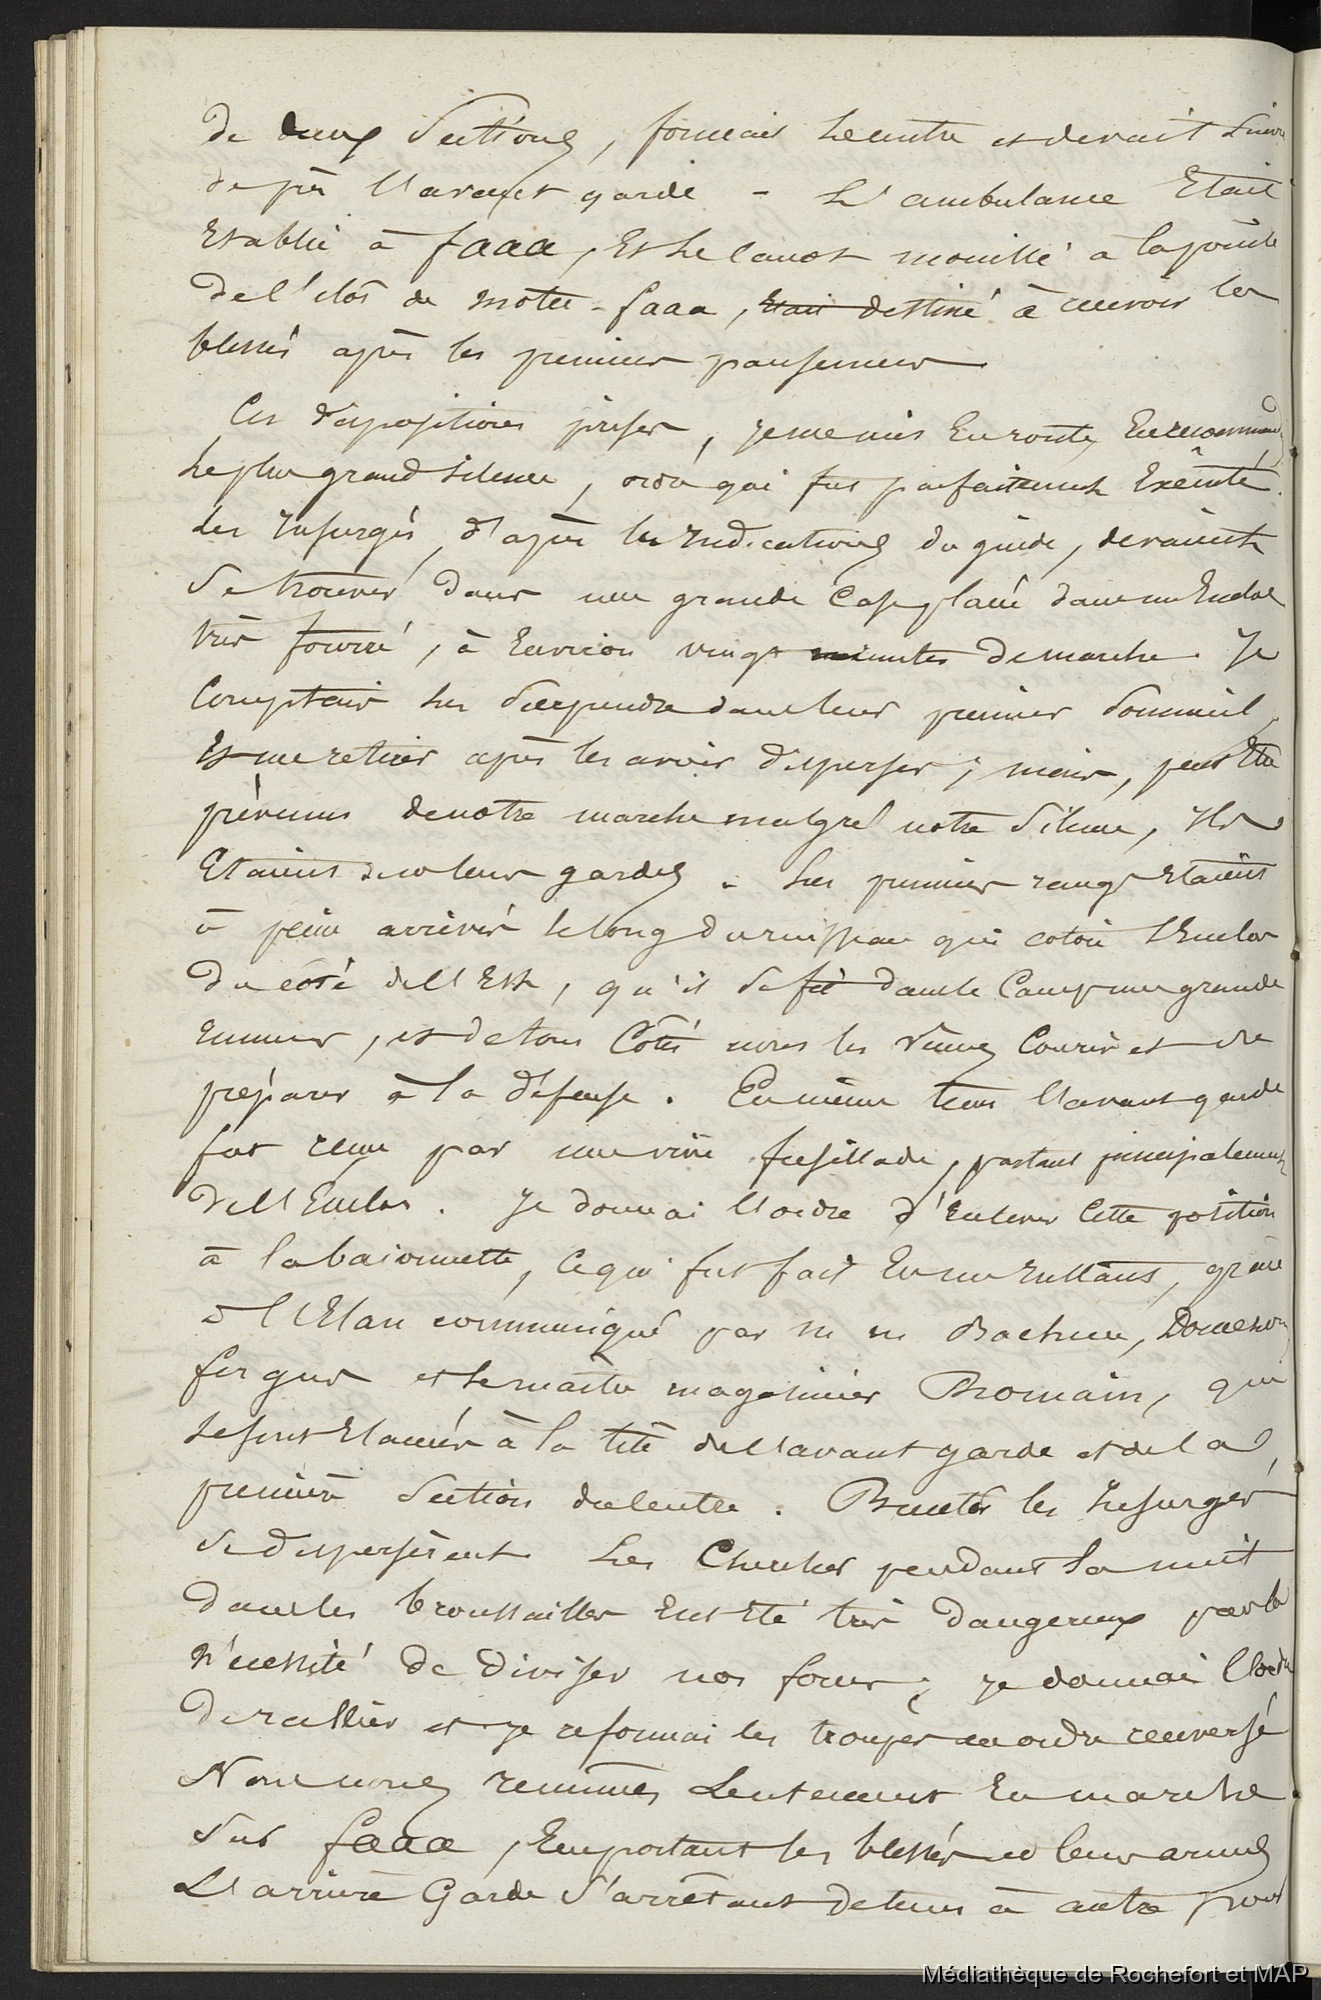 de deux Sections, formait le centre et devait suivre
de près l'avant garde - L'ambulance Etait
Etablie à faaa, Et le canot mouillé à la pointe
de l'ilôt de Motu-faaa, Etait destiné à recevoir les
blessés après les premiers pansemens
Ces dispositions prises, je me mis En route, Recommandant
le plus grand silence, ordre qui fut parfaitement Exécuté.
Les Insurgés, d'après les Indications du guide, devaient
se trouver dans une grande Case placée dans un Enclos
très fourré, à Environ vingt minutes de marche. Je
Comptais les Surprendre dans leur premier Sommeil,
Et me retirer après les avoir disperser; mais, peut Etre
prévenus de notre marche malgré notre Silence, Ils
Etaient sur leurs gardes. Les premiers rangs Etaient
à peine arrivés le long du ruisseau qui cotoie l'Enclos
du côté de l'Est, qu'il se fit dans le Camp une grande
rumeur, et de tous Côtés nous les vîmes Courir et se
préparer à la défense. En même tems l'avant garde
fut reçue par une vive fusillade, partant principalement
de l'Enclos. Je donnai l'ordre d'Enlever Cette position
à la baïonnette, Ce qui fut fait En un Instant, grâce
à l'Elan communiqué par M M
fergus et le maître magasinier Romain, qui
se sont Elancés à la tête de l'avant garde et de la
première Section du centre. Bientôt les Insurgés
se dispersèrent Les Chercher pendant la nuit
dans les broussailles Eut Eté très dangereux par la
nécessité de diviser nos forces; je donnai l'ordre
de rallier et je reformai les troupes en ordre renversé
Nous nous remîmes Lentement En marche
sur faaa, Emportant les blessés et leurs armes
L'arrière Garde s'arrêtant de tems à autre pour
Médiathèque de Rochefort et MAP